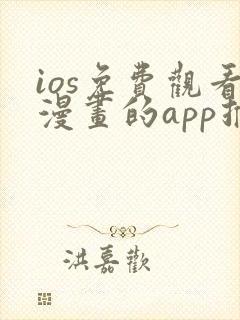 ios免費觀看
漫畫的app推
洪嘉歡